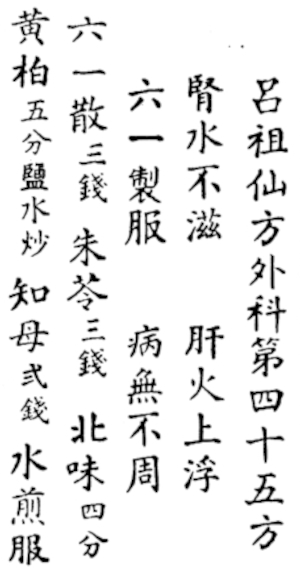 呂祖仙方外科第四十五方
腎水不滋 肝火上浮
六一製服 病無不周
六一散三錢 朱苓三錢 北味四分
黃柏五分鹽水炒 知母弍錢 水煎服